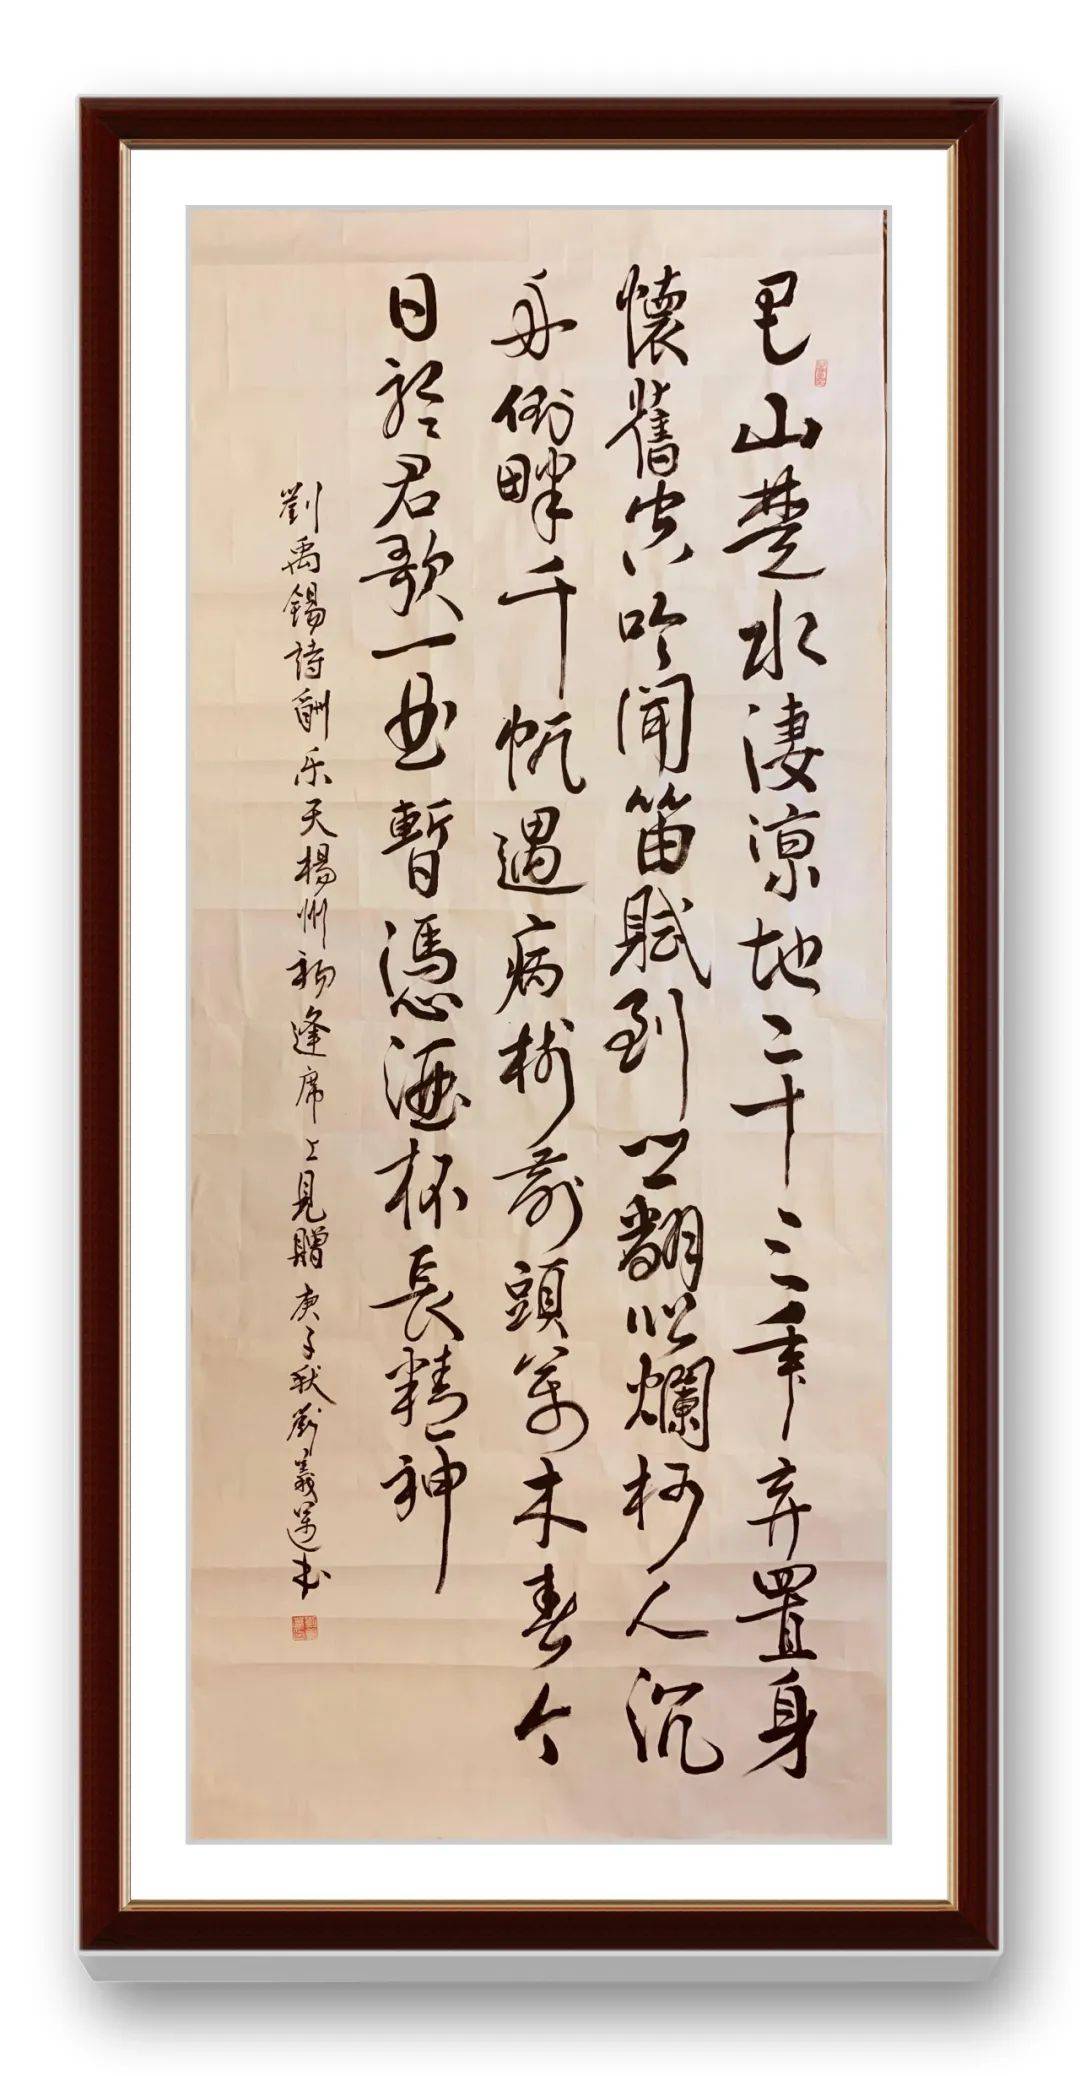 巴山楚水淒凉地二十三年弃置身
懷舊空吟聞笛賦到鄉翻似爛柯人沉
舟側畔千帆過病樹前頭萬木春今
日聽君歌一曲暫憑酒杯長精神
劉禹錫詩酬乐天楊州初逢席上見贈庚子秋劉義運书